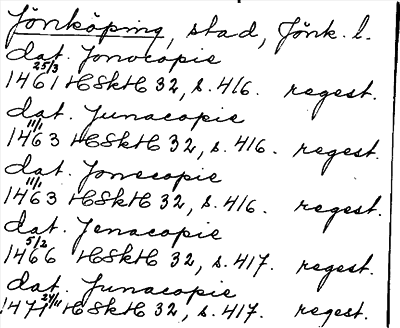 Jönköping, stad, Jönk. l.
dat. Jonocopie
1461 25/3 HSkH 32, s. 416. regest.
dat. Junacopie
1463 11/1 HSkH 32, s. 416. regest.
dat. Jonecopie
1463 11/1 HSkH 32, s. 416. regest.
dat. Jenacopie
1466 5/2 HSkH 32, s. 417. regest.
dat. Junacopie
1471 24/11 HSkH 32, s. 417. regest.